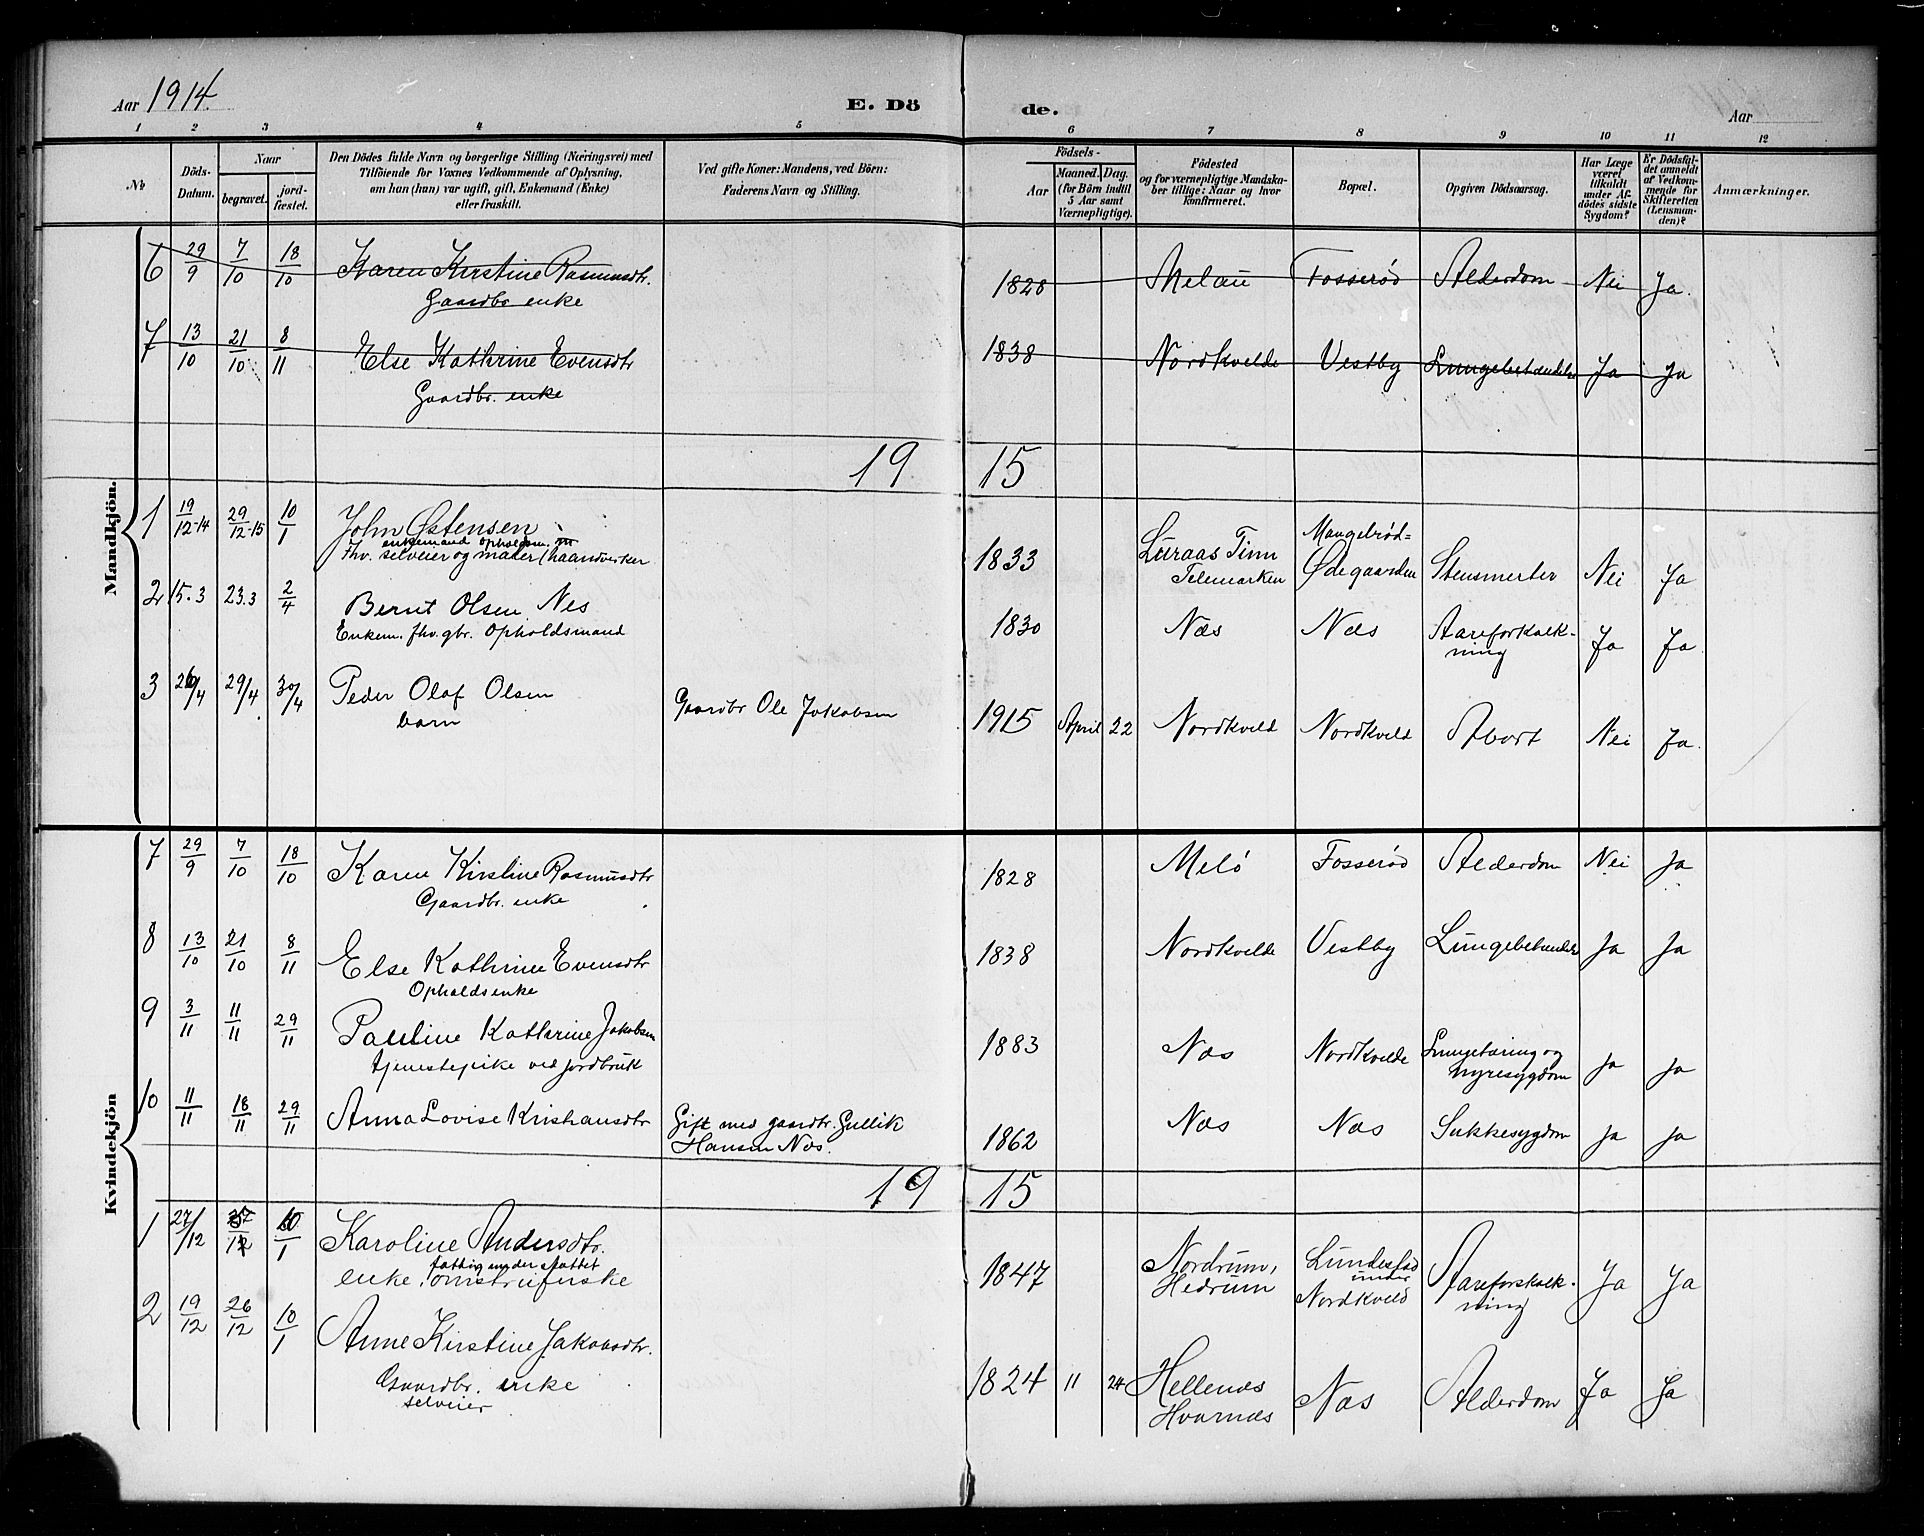 Aar 1914.
E. Dö
de.
Aar
1 2 3 4 5 6 7 8 9 10 11 12
No
Döds-Datum.
Naar
begravet.
jord-fæstet.
Den Dödes fulde Navn og borgerlige Stilling (Næringsvei) med
Tilföiende for Voxnes Vedkommende af Oplysning.
om han (hun) var ugift, gift, Enkemand (Enke)
eller fraskilt.
Ved gifte Koner: Mandens, ved Börn:
Faderens Navn og Stilling.
Födsels-
Aar
Maaned. Dag.
(for Börn indtil
5 Aar samt
Værnepligtige).
Födested
og for værnepligtige Mandska-
ber tillige: Naar og hvor
konfirmeret.
Bopæl.
Opgiven Dödsaarsag.
Har Læge
været
tilkaldt
under Af-
dödes sidste
Sygdom?
Er Dödsfal-
det anmeldt
af Vedkom-
mende for
Skifteretten
(Lensman-
den)?
Anmærkninger.
Mandkjön.
6 29/9 7/10 18/10 Karen Kirstine Rasmusdtr. 1828 Melau Fosserød Alderdom Nei Ja.
Gaardbr enke
7 13/10 21/10 8/11 Else Kathrine Evensdtr 1838 Nordkvelde Vestby Lungebetændelse Ja Ja
Gaardbr. enke
19 15
1 19/12-14 29/12-15 10/1 John Østensen 1833 Luraas Tinn Telemarken Mangelrød=Ødegaarden Stensmerter Nei Ja
enkemand opholdsm.
fhv. selveier og maler (haandverker
2 15.3 23.3 2/4 Bernt Olsen Nes 1830 Næs Næs Aareforkalk-ning Ja Ja
Enkem. fhv. gbr. Opholdsmand
3 26/4 29/4 30/4 Peder Olaf Olsen Gaardbr Ole Jakobsen 1915 April 22 Nordkveld Nordkveld Abort Nei Ja.
barn
Kvindekjön
7 29/9 7/10 18/10 Karen Kirstine Rasmusdtr 1828 Melö Fosserød Alderdom Nei Ja
Gaardbr. enke
8 13/10 21/10 8/11 Else Kathrine Evensdtr 1838 Nordkvelde Vestby Lungebetændelse Ja Ja
Opholdsenke
9 3/11 11/11 29/11 Pauline Katherine Jakobsen 1883 Næs Nordkvelde Lungetæring og nyresygdom Ja Ja
tjenestepike ved jordbruk
10 11/11 18/11 29/11 Anna Lovise Kristiansdtr Gift med gaardbr. Gullik 1862 Næs Næs Sukkesygdom Ja Ja
Hansen Næs.
19 15
1 27/12 10/1 Karoline Andersdtr. 1847 Nordrum, Hedrum Lundestad under Nordkveld Aareforskalk-ning Ja Ja
fattigunderstøttet
enke,
2 19/12 26/12 10/1 Anne Kirstine Jakobsdtr. 1824 11 24 Hellenæs Hvarnæs Næs Alderdom Ja Ja
Gaardbr. enke
selveier